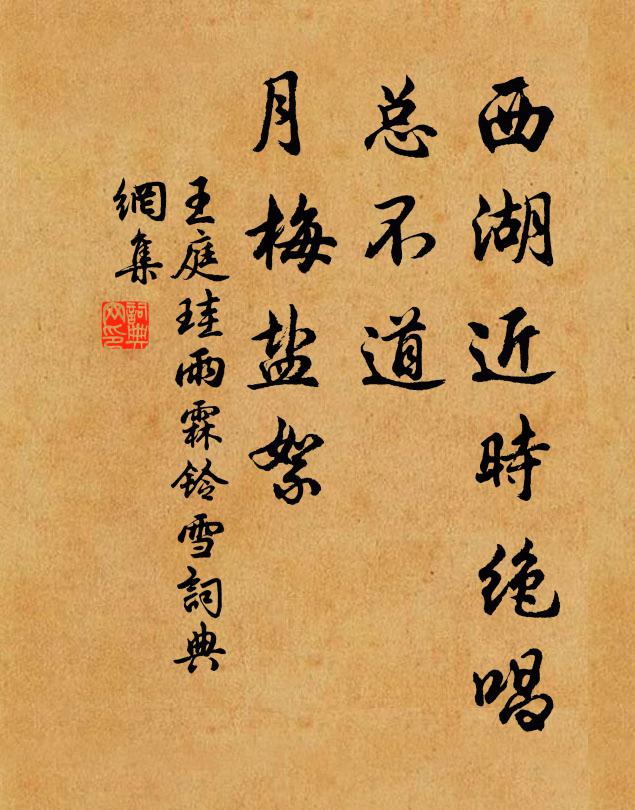 西湖近時绝唱
总不道
月梅盐絮
王庭珪雨霖铃雪詞典
網集
詞典
网印